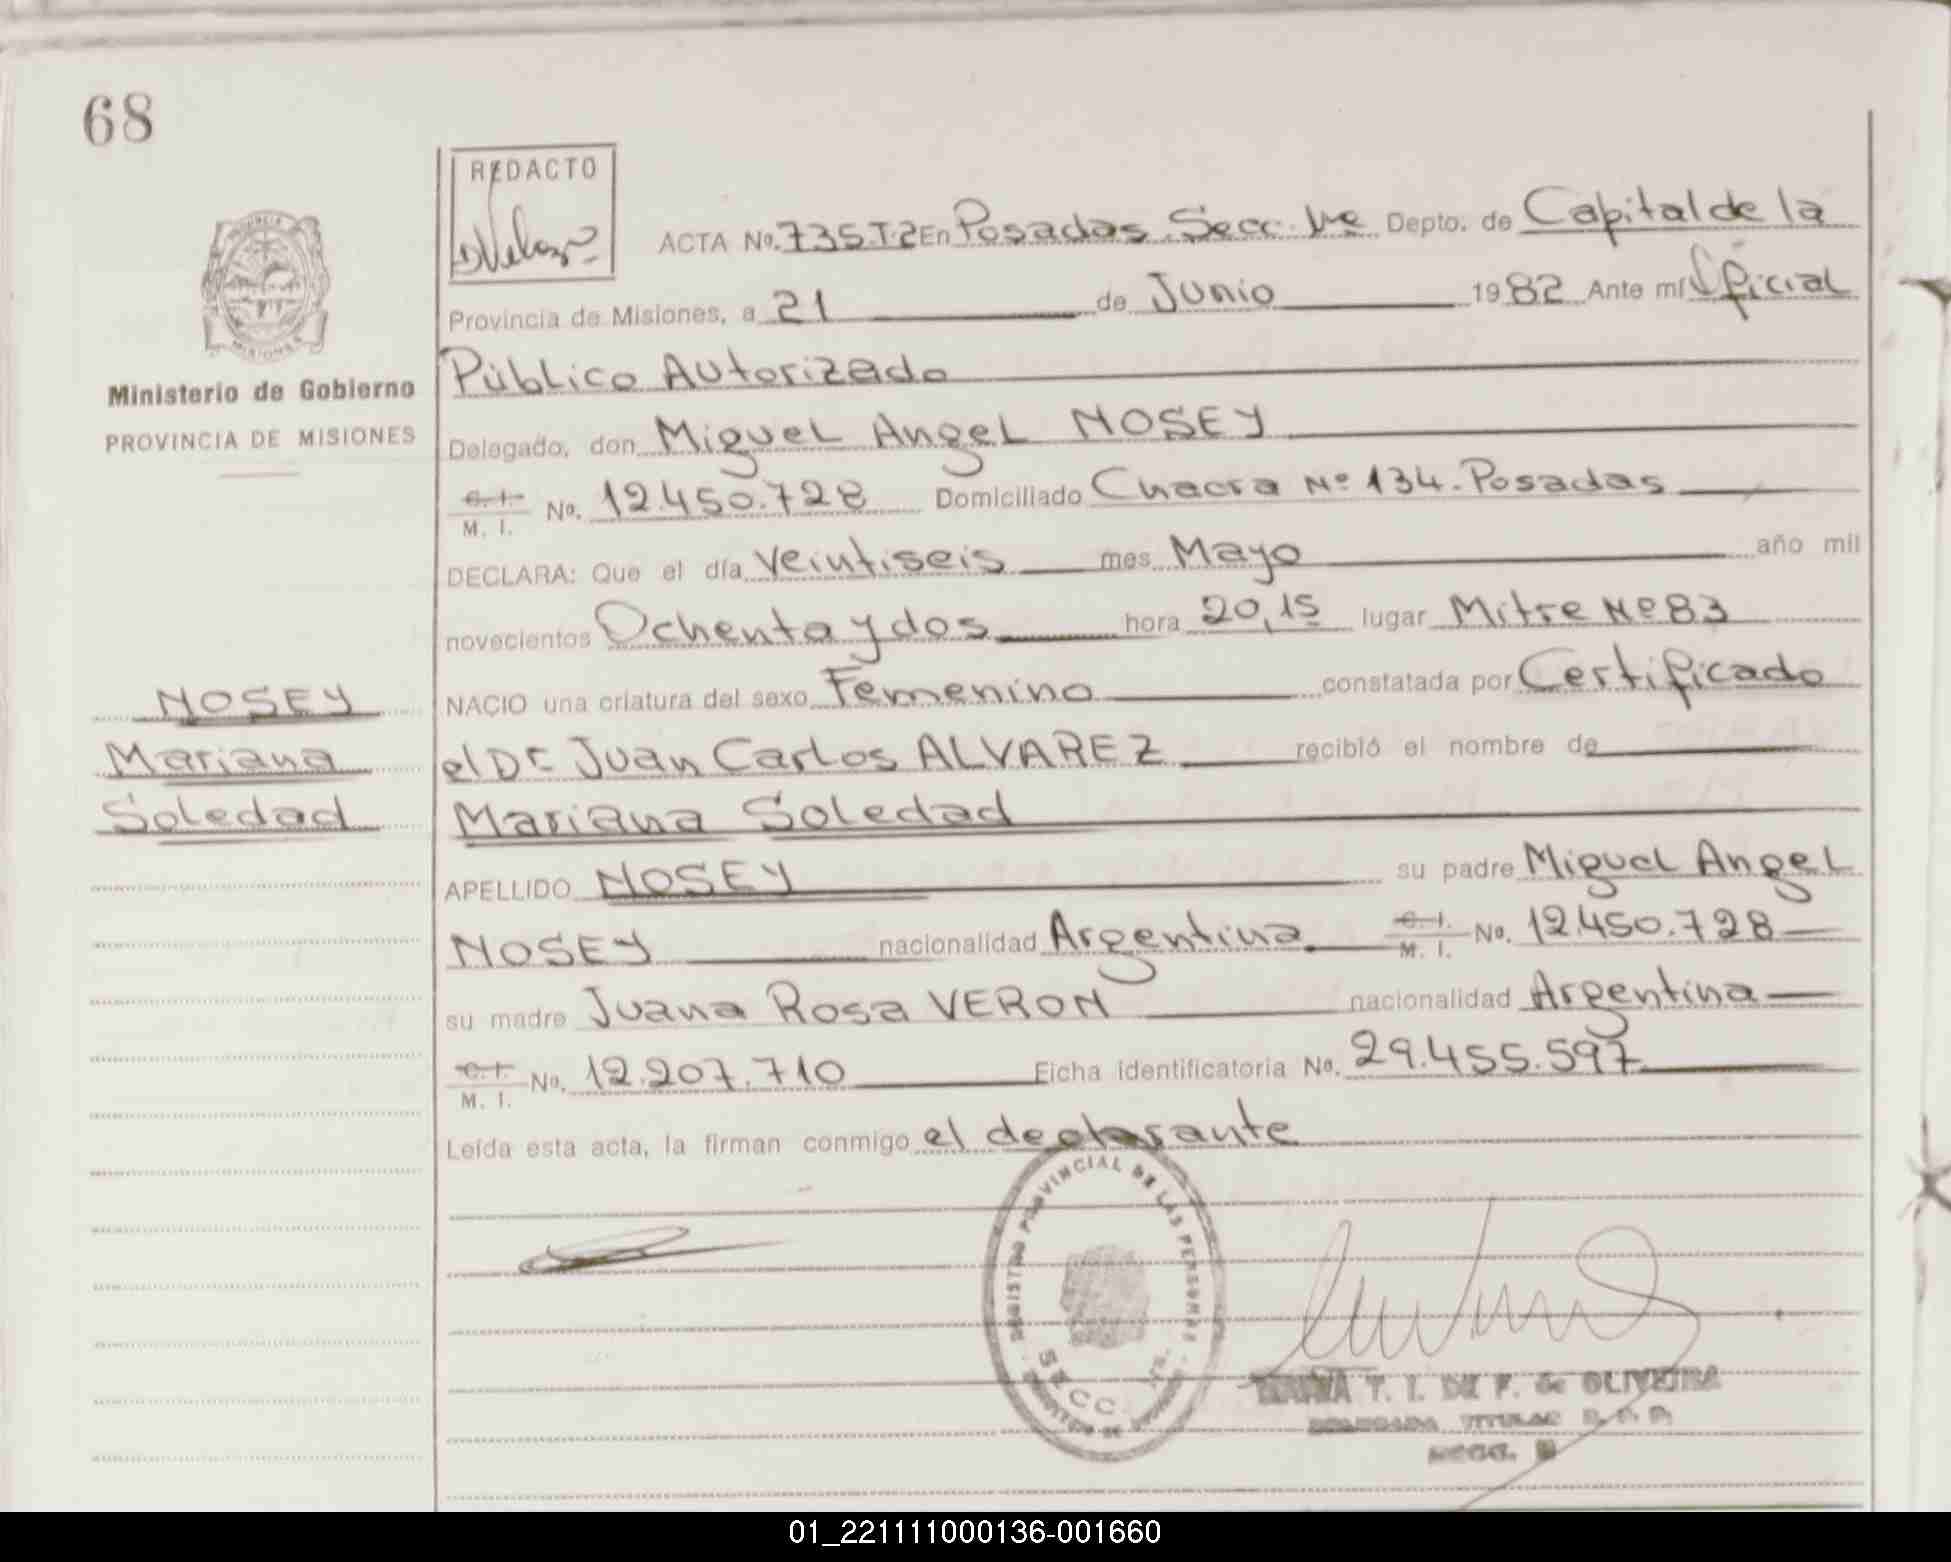 68
REDACTO
ACTA No. 735.T.2 En Posadas Secc. 1ra Depto. de Capital de la
Provincia de Misiones, a 21 de Junio 1982 Ante mí Oficial
Público Autorizado
Delegado, don Miguel Angel NOSEY
C. I. M. I. No. 12.450.728 Domiciliado Chacra Nº 134. Posadas
DECLARA: Que el día Veintiseis mes Mayo año mil
novecientos Ochenta y dos hora 20,15 lugar Mitre Nº 83
NACIO una criatura del sexo Femenino constatada por Certificado
el Dr Juan Carlos ALVAREZ recibió el nombre de
Mariana Soledad
APELLIDO NOSEY su padre Miguel Angel
NOSEY nacionalidad Argentina C. I. M. I. No. 12.450.728
su madre Juana Rosa VERON nacionalidad Argentina
C. I. M. I. No. 12.207.710 Ficha identificatoria No. 29.455.597
Leída esta acta, la firman conmigo el declarante
MISIONES
Ministerio de Gobierno
PROVINCIA DE MISIONES
NOSEY
Mariana
Soledad
REGISTRO PROVINCIAL DE LAS PERSONAS
SECC. 1ra.
T. I. DE F. de OLIVEIRA
DELEGADA TITULAR
SECC.
01_221111000136-001660